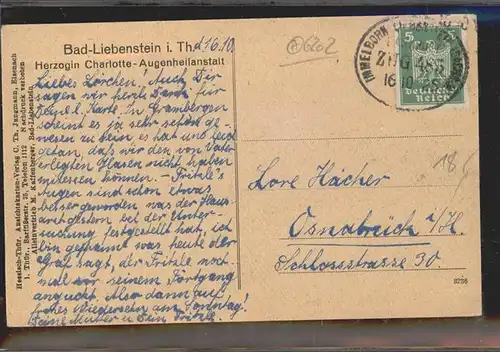 Bad-Liebenstein i. Th. d. 16.10.
Herzogin Charlotte-Augenheilanstalt
Liebes Lorchen! Auch Dir
sagen wir herzl. Dank für
Brief u. Karte. In Grambergen
scheint es ja sehr schön ge-
wesen zu sein es hat uns leid
getan, daß wir den von Vater
erlegten Hasen nicht haben
miltessen können. - Fritzle's
Augen sind schon etwas
besser geworden was der Haus-
arzt gestern bei der Unter-
suchung festgestellt hat, ich
bin gespannt was heute der
Graf sagt, der Fritzle noch-
mal vor seinem Fortgang
anguckt. Also dann auf
frohes Wiedersehn am Sonntag!
Deine Mutter u Dein Fritzle.
Hessisch-Thür. Ansichtskarten-Verlag C. Th. Jungmann, Eisenach
i. Thür., Barfüßerstr. 15. Telefon 1112 Nachdruck verboten
Alleinvertrieb M. Kaltenborner, Bad-Liebenstein.
6202
IMMELBORN
ZUG 455
16 10
5 5
Deutsches
Reich
18
Lore Hacher
Osnabrück i/H.
Schlossstrasse 30.
9256